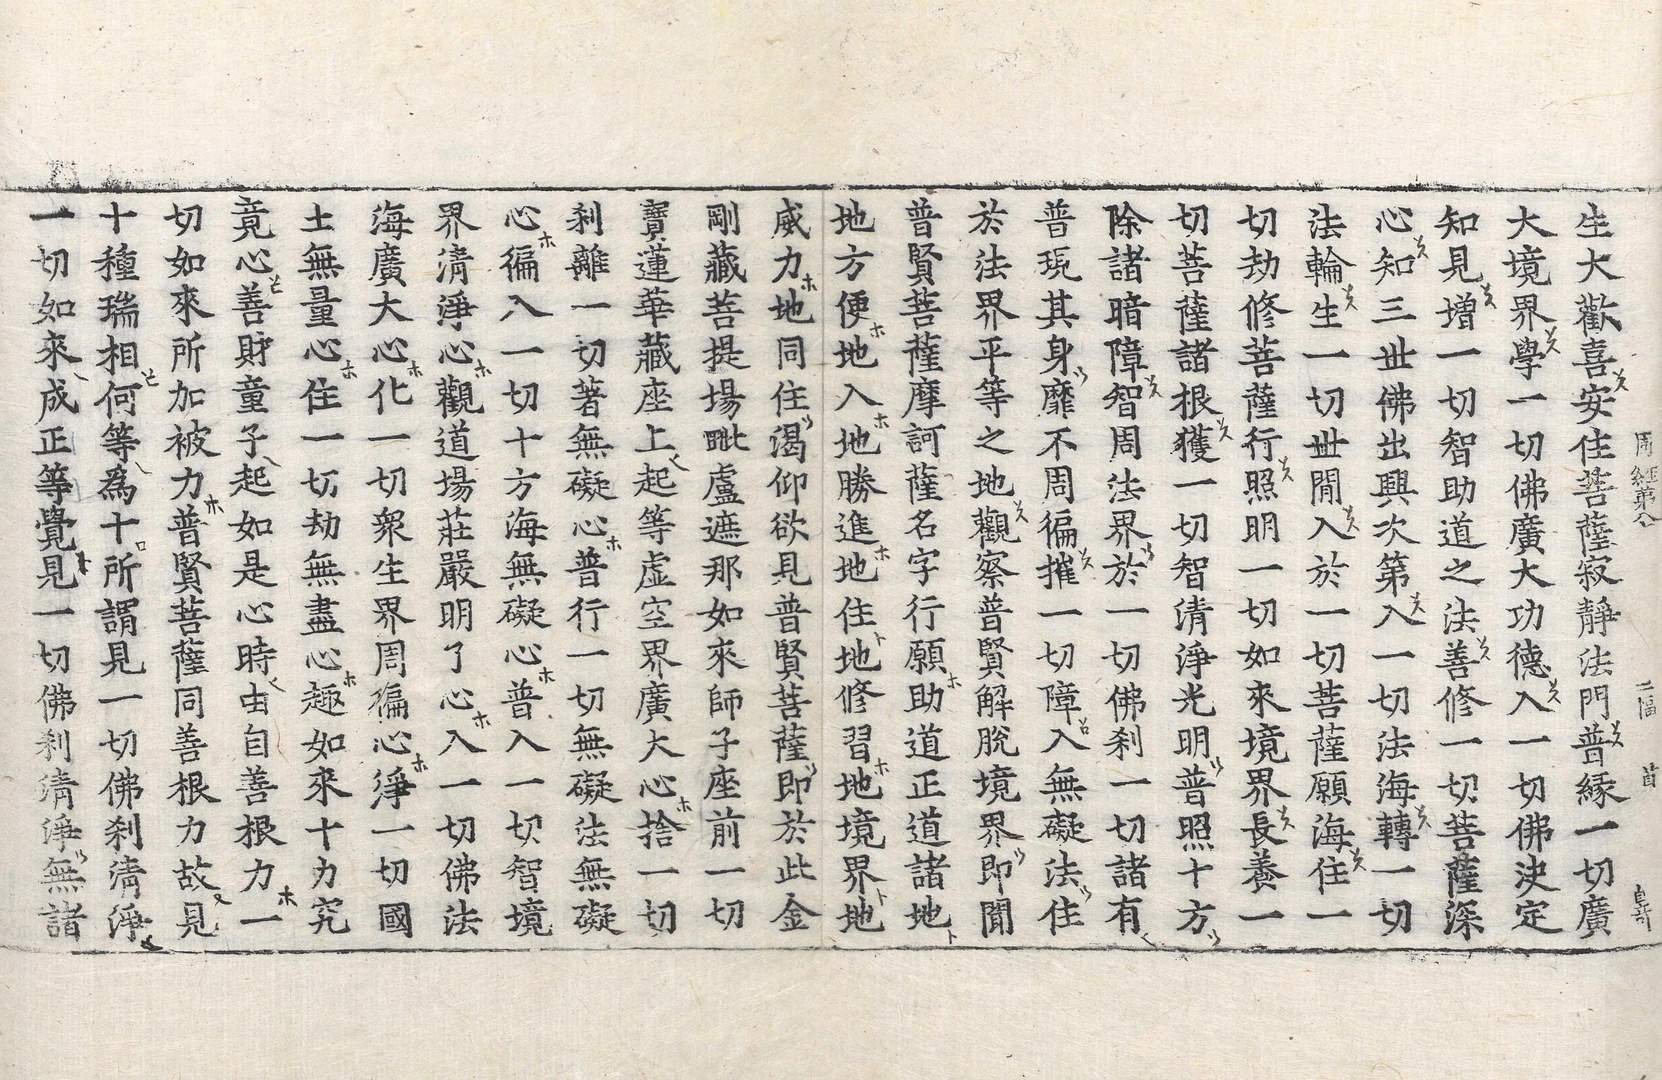 周經第六 二幅 首
生大歡喜安住菩薩寂靜法門普緣一切廣
大境界學一切佛廣大功德入一切佛決定
知見增一切智助道之法善修一切菩薩深
心知三世佛出興次第入一切法海轉一切
法輪生一切世間入於一切菩薩願海住一
切劫修菩薩行照明一切如來境界長養一
切菩薩諸根獲一切智清淨光明普照十方
除諸暗障智周法界於一切佛剎一切諸有
普現其身靡不周徧摧一切障入無礙法住
於法界平等之地觀察普賢解脫境界即聞
普賢菩薩摩訶薩名字行願助道正道諸地
地方便地入地勝進地住地修習地境界地
威力地同住渴仰欲見普賢菩薩即於此金
剛藏菩提場毗盧遮那如來師子座前一切
寶蓮華藏座上起等虛空界廣大心捨一切
剎離一切著無礙心普行一切無礙法無礙
心徧入一切十方海無礙心普入一切智境
界清淨心觀道場莊嚴明了心入一切佛法
海廣大心化一切衆生界周徧心淨一切國
土無量心住一切劫無盡心趣如來十力究
竟心善財童子起如是心時由自善根力一
切如來所加被力普賢菩薩同善根力故見
十種瑞相何等為十所謂見一切佛剎清淨
一切如來成正等覺見一切佛剎清淨無諸